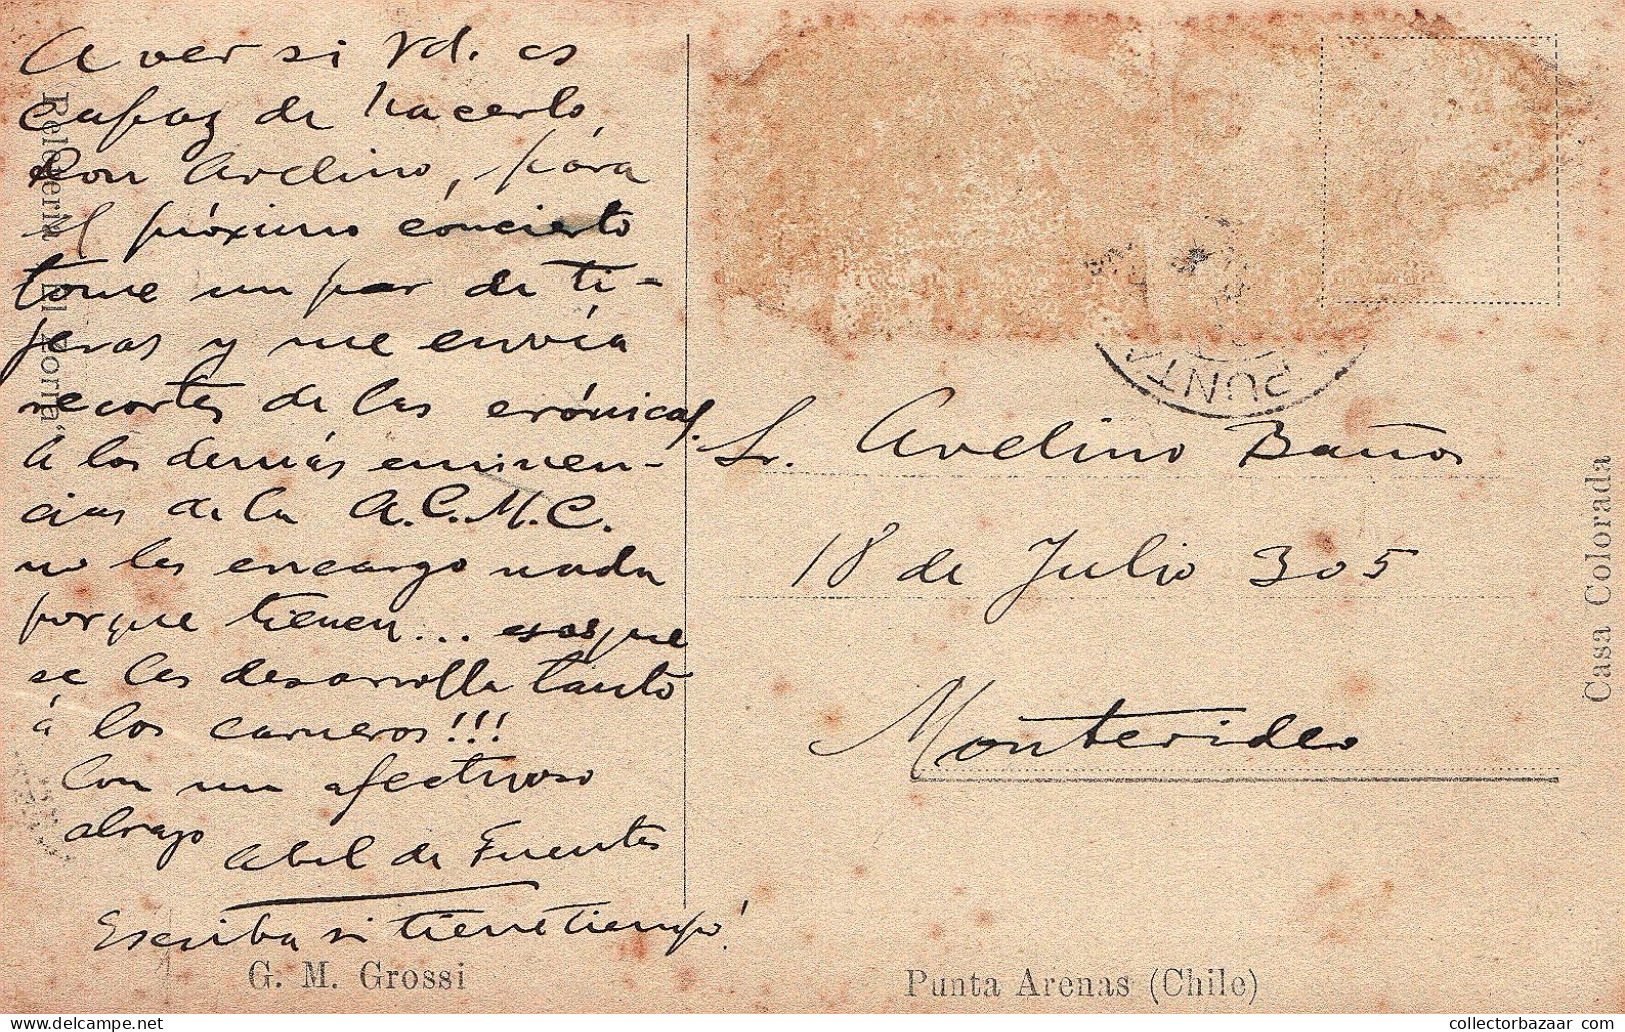 A ver si Vd. es
capaz de hacerlo
Don Avelino, para
el próximo concierto
tome un par de ti-
jeras y me envía
recortes de las crónicas.
A los demás eminen-
cias de la A.C.M.C.
no les encargo nada
porque tienen... esas que
se les desarrolla tanto
á los carneros!!!
Con un afectuoso
abrazo
Abel de Fuentes
Escriba si tiene tiempo!
G. M. Grossi
Relojería "El Morro"
PUNTA
Sr. Avelino Baños
18 de Julio 305
Montevideo
Casa Colorada
Punta Arenas (Chile)
collectorbazaar.com